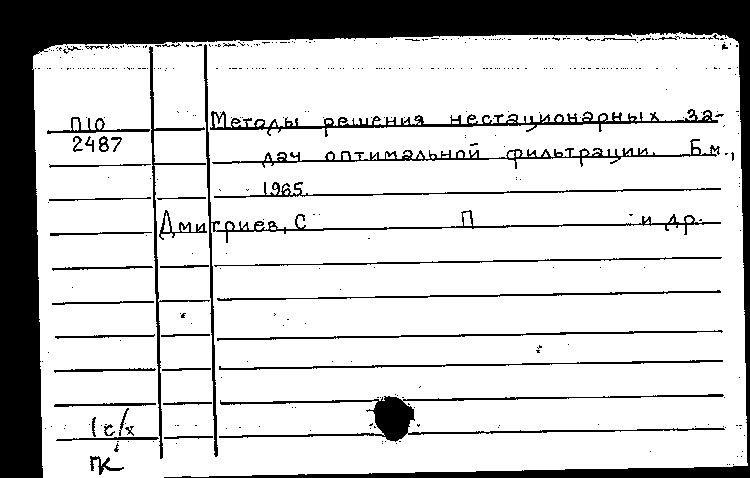 П10 Методы решения нестационарных за-
2487 дач оптимальной фильтрации. Б.м.,
1965.
Дмитриев, С П и др.
1 с/х
ПК